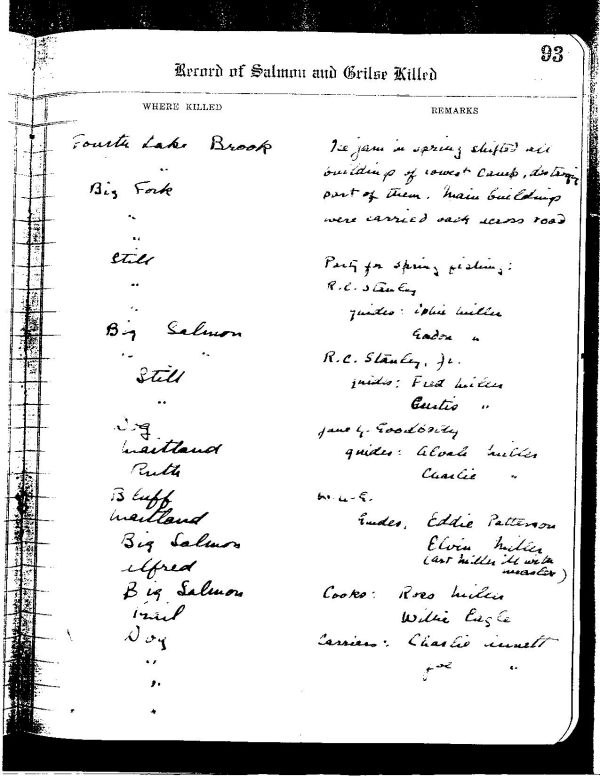 93
Record of Salmon and Grilse Killed
WHERE KILLED
REMARKS
Fourth Lake Brook
"
Big Fork
"
"
Still
"
Big Salmon
" "
Still
"
Dog
Maitland
Ruth
Bluff
Maitland
Big Salmon
Alfred
Big Salmon
Trail
Dog
"
"
"
Ice jam in spring shifted all
buildings of lowest camp, destroying
part of them. Main buildings
were carried back across road
Party for spring fishing:
R.C. Stanley
guides: Miller
Gordon "
R.C. Stanley, Jr.
guides: Fred Miller
Curtis "
Jane G.
guides: Alvah Miller
Charlie "
Guides, Eddie Patterson
Elvin Miller
(Art Miller ill with
)
Cooks: Ross Miller
Willie Eagle
Carriers: Charlie
Joe "